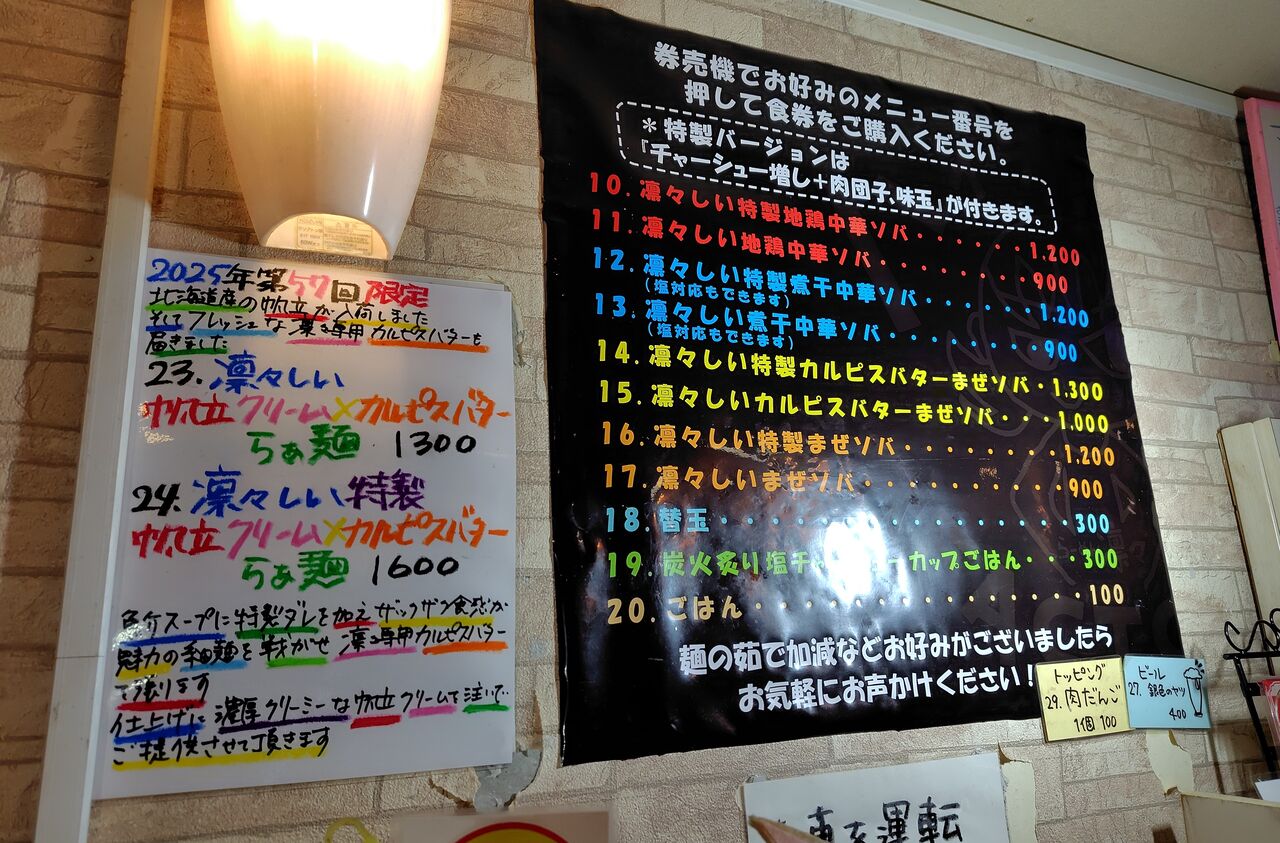 2025年第57回限定
北海道産の帆立が入荷しました
そしてフレッシュな凛々専用カルピスバターも
届きました
23. 凛々しい
帆立クリーム×カルピスバター
らぁ麺 1300
24. 凛々しい特製
帆立クリーム×カルピスバター
らぁ麺 1600
魚介スープに特製ダレを加えザックザク食感が
魅力の細麺を軽がせ凛々専用カルピスバター
で
仕上げに濃厚クリーミーな帆立クリームを注いで
ご提供させて頂きます
券売機でお好みのメニュー番号を
押して食券をご購入ください。
＊特製バージョンは
『チャーシュー増し＋肉団子、味玉』が付きます。
10. 凛々しい特製地鶏中華ソバ・・・・・・・1.200
11. 凛々しい地鶏中華ソバ・・・・・・・・・900
12. 凛々しい特製煮干中華ソバ・・・・・・・1.200
(塩対応もできます)
13. 凛々しい煮干中華ソバ・・・・・・・・・900
(塩対応もできます)
14. 凛々しい特製カルピスバターまぜソバ・1.300
15. 凛々しいカルピスバターまぜソバ・・・1.000
16. 凛々しい特製まぜソバ・・・・・・・・・1.200
17. 凛々しいまぜソバ・・・・・・・・・・・900
18. 替玉・・・・・・・・・・・・・・・・・300
19. 炭火炙り塩チャ カップごはん・・・300
20. ごはん・・・・・・・・・・・・・・・・100
麺の茹で加減などお好みがございましたら
お気軽にお声かけください！
トッピング
29. 肉だんご
1個 100
ビール
27. 銀色のヤツ
400
車を運転